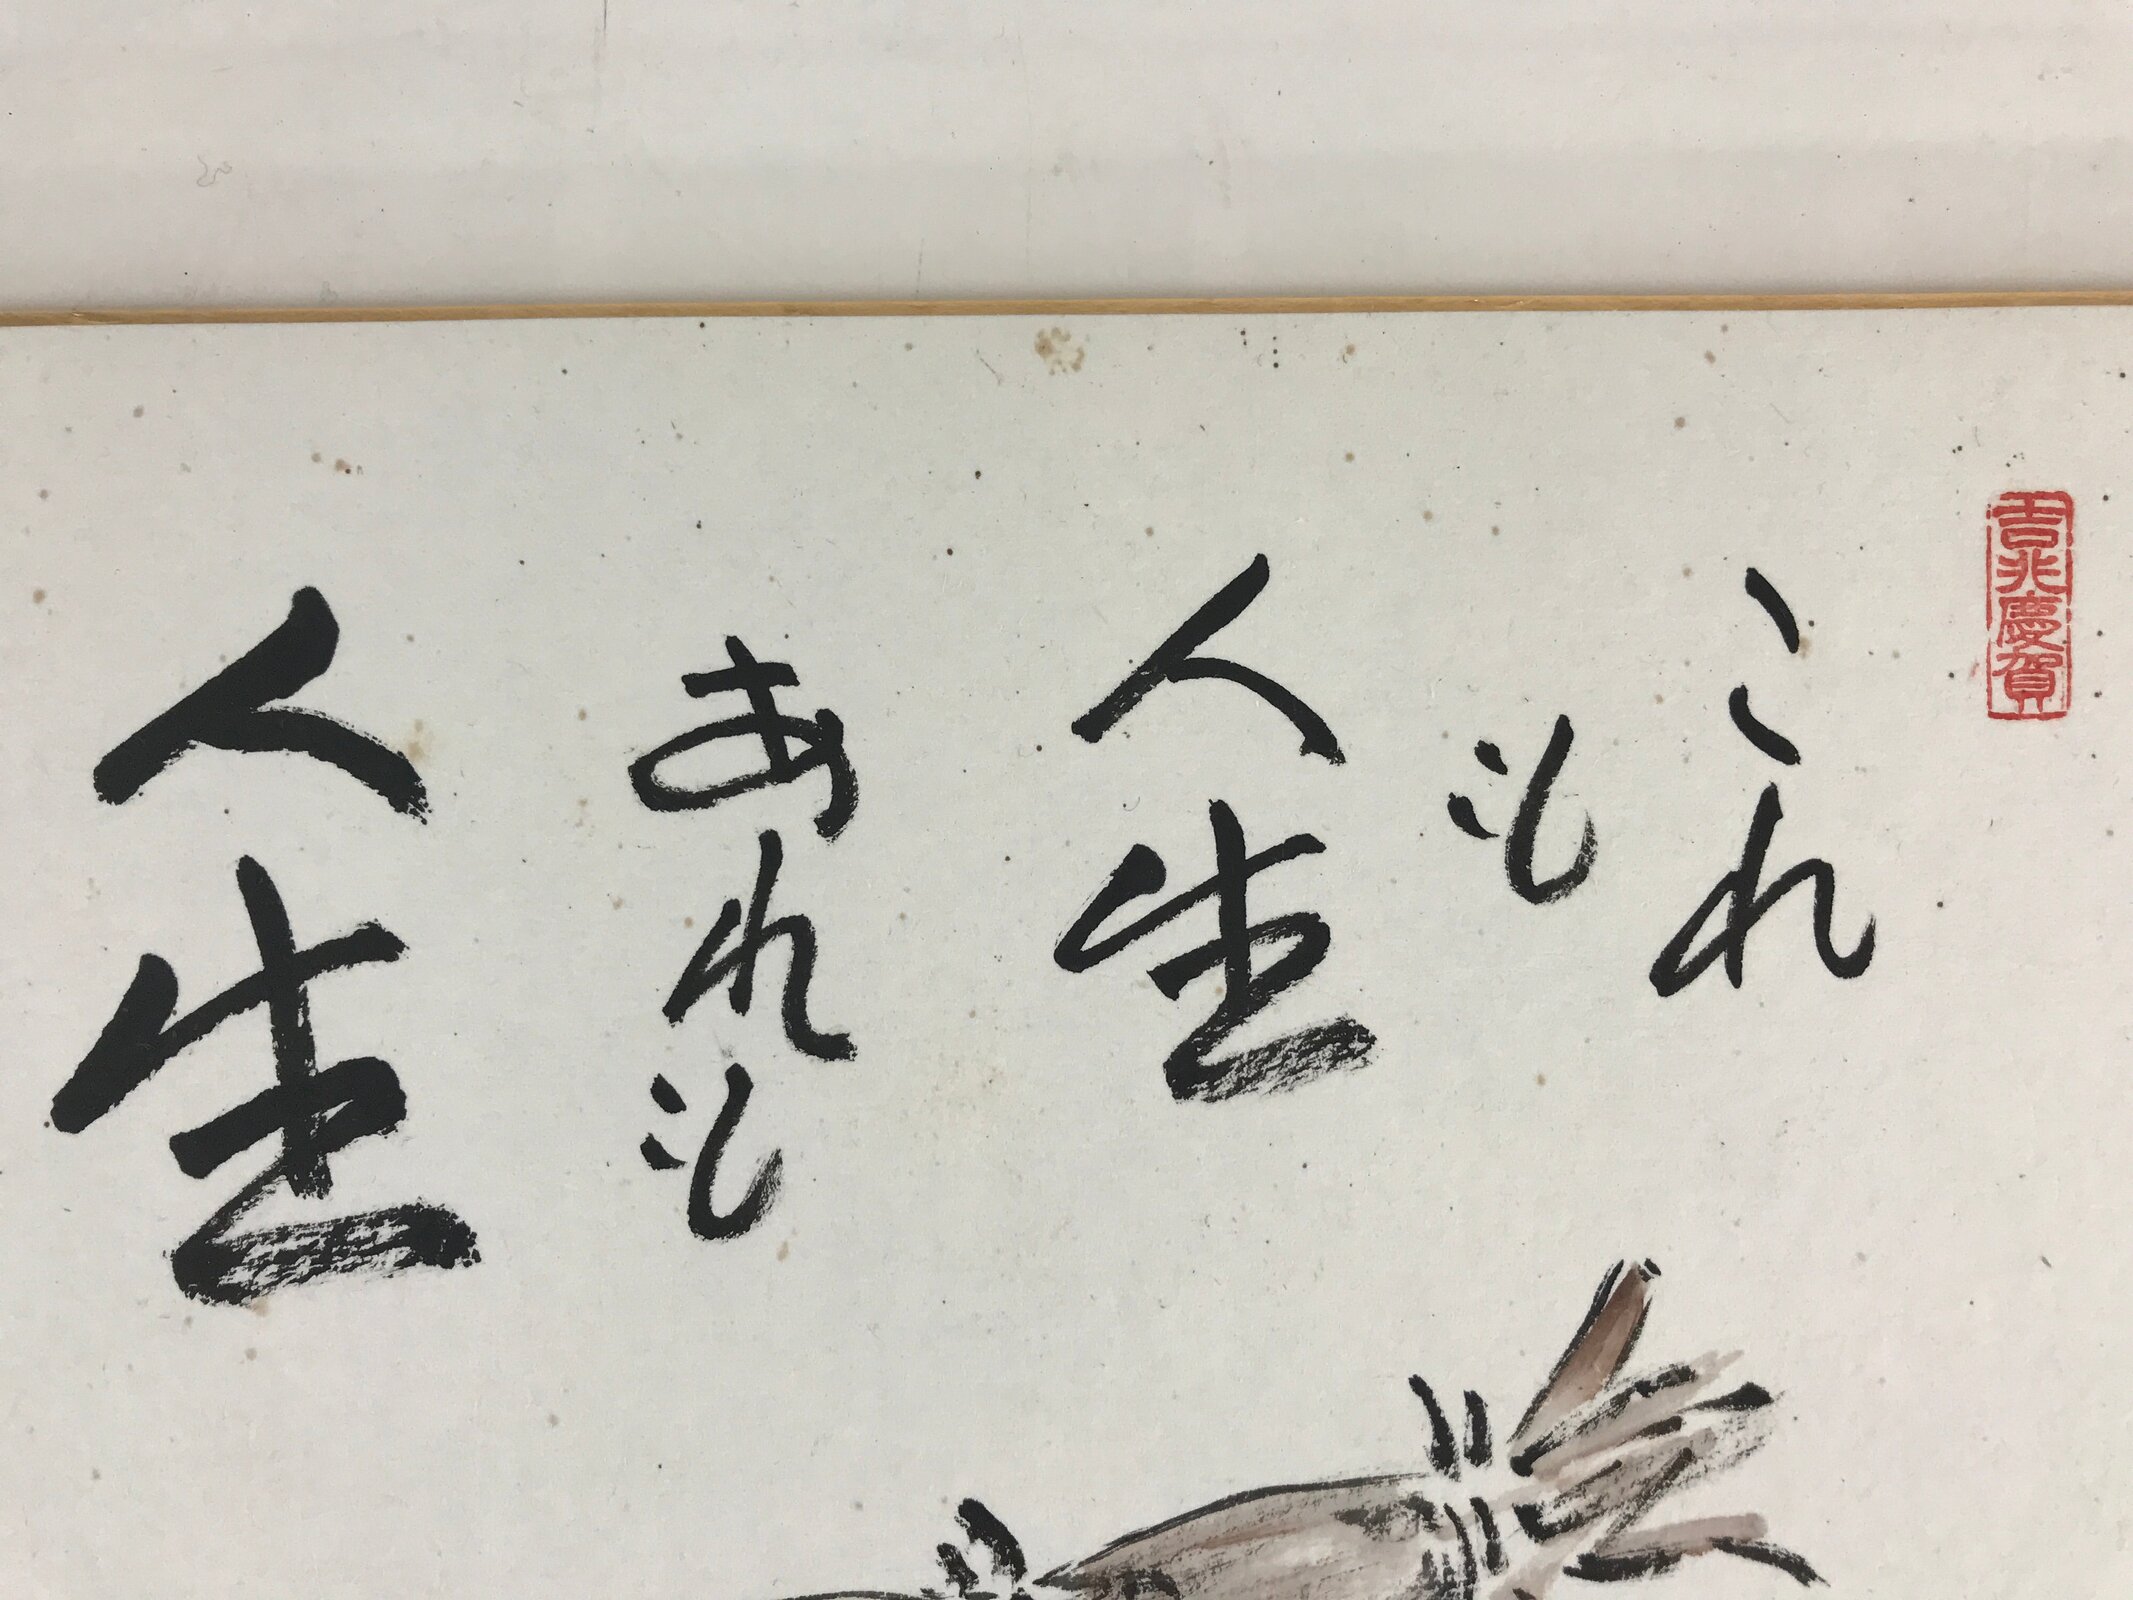 吉兆慶賀
これ
も
人生
あれも
人生